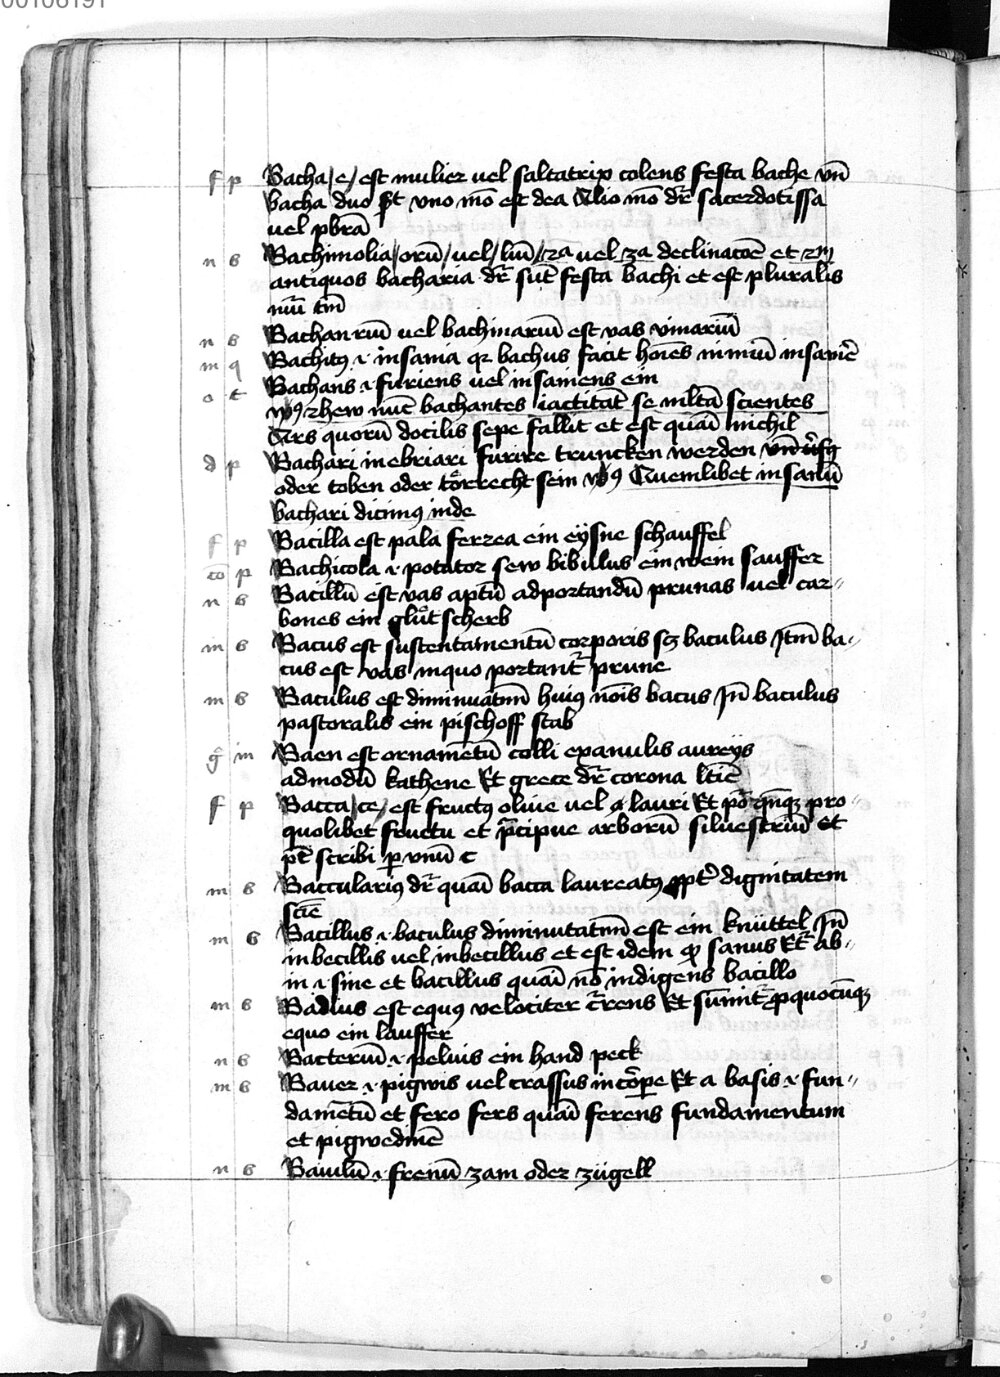 00106191
f p Bacha /e/ est mulier vel saltatrix colens festa bache vn̄
bacha duo st̄ vno mō est dea Alio mō dr̄ sacerdotissa
vel pbr̄a
n b Bachimolia /orū/ vel /liū/ 2a vel 3a declinacōe et 2m
antiquos bacharia dr̄ sūt festa bachi et est pluralis
nūi tm̄
n b Bachanrium vel bachinarium est vas vinariū
m q Bachitꝰ .i. insania qr bachus facit hoīes nimiū insanīe
o t Bachans .i. furiens vel insaniens ein
vꝰ rhew nūc bachantes iactitāt se mltā scientes
Ars quorū docilis sepe fallit et est quasi nichil
d p Bachari inebriari furire truncken werden vnsinnig
oder toben oder törrecht sein vꝰ Quemlibet insanū
bachari dicimꝰ inde
f p Bacilla est pala ferrea ein eysne schauffel
co p Bachicola .i. potator sew bibulus ein wein sauffer
n b Bacillū est vas aptū adportandū prunas vel car-
bones ein glůt scherb
m b Bacus est sustentamentū corporis sꝫ baculus Itm̄ ba-
cus est vas inquo portant̄ prune
m b Baculus est diminuatm̄ huiꝰ nōis bacus Jn̄ baculus
pastoralis ein pischoff stab
g̅ m Baen est ornamētū colli exanulis aureys
admodū kathene Et grece dr̄ corona ltīe
f p Bacca /ce/ est fructꝰ oliue vel lauri Et pōt qn̄qꝫ pro
quolibet fructu et p̄cipue arborū siluestriū Et
pōt scribi ꝑ vnū c
m b Baccularius dr̄ quasi bacca laureatꝰ ꝓpt̄ dignitatem
scīe
m b Bacillus .i. baculus diminutatm̄ est ein knüttel Jn̄
inbecillis vel inbecillus et est idem ꝙ sanus Et̄ ab-
in .i. sine et bacillus quasi nō indigens bacillo
m b Badius est equꝰ velociter c̄rens Et sūmit̄ ꝓquocūqꝫ
equo ein lauffer
n b Bacterium .i. peluis ein hand peck
m b Bauer .i. pigwis vel crassus in cōrpe Et a basis .i. fun-
damētū et fero fers quasi ferens fundamentum
et pigwedinē
n b Baiulū .i. frenū zam oder zügell